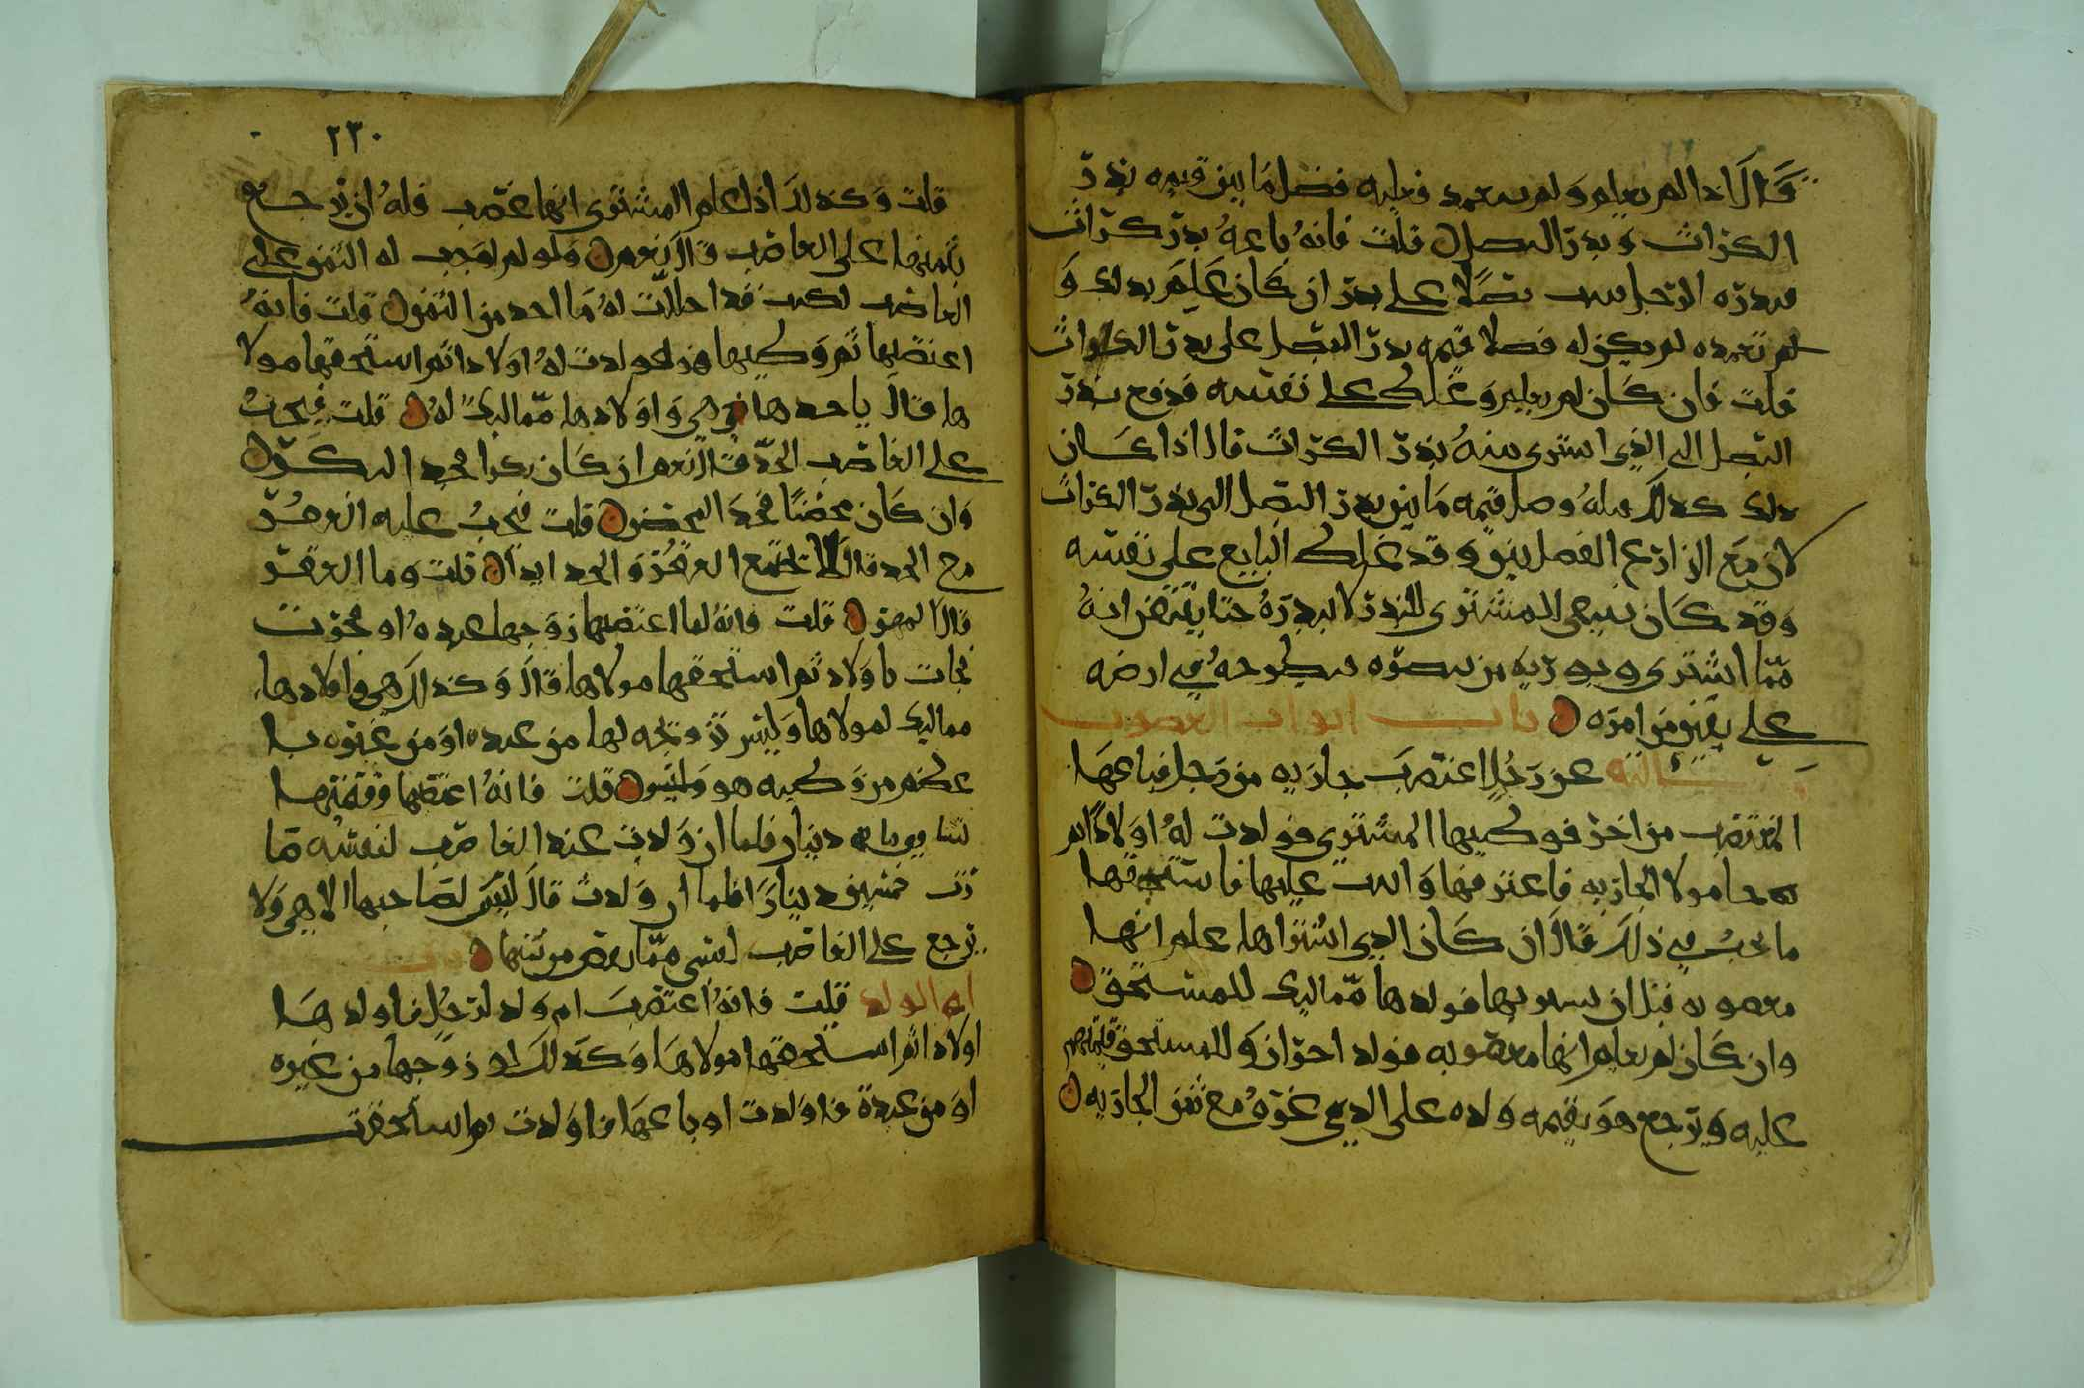 قال اذا لم يعلم ولم يتعمد فعليه فضل ما بين قيمه بذر
الكراث وبذر البصل قلت فانه باعه بذر كراث
فبذره الرجل بصلا على بذر ان كان علم بذلك و
لم تعمده لم يكن له فضلا قيمه بذر البصل على بذر الكراث
قلت فان كان لم يعلم وغلط على نفسه فدفع بذر
البصل الى الذي اشترى منه بذر الكراث قال اذا كان
ذلك كذلك فله فضل قيمه ما بين بذر البصل الى بذر الكراث
لان مع الزارع الفضل بين وقد غلط البايع على نفسه
وقد كان ينبغي للمشتري البذر لا يبذره حتا يتيقن انه
مما اشترى يطرحه في ارضه
على يقين من امره باب ابواب الغصوب
سالته عن رجل اغتصب جاريه من رجل فباعها
المغتصب من اخر فوطيها المشتري فولدت له اولادا ثم
جا مولا الجاريه فاعترفها عليها فاستحقها
ما يجب في ذلك قال ان كان الذي اشتراها علم انها
مغصوبه قبل ان يشتريها فولدها مماليك للمستحق
وان كان لم يعلم انها مغصوبه فولده احرار وللمستحق قيمتهم
عليه ويرجع هو بقيمه ولده على الذي غره مع ثمن الجاريه
٢٣٠
قلت وكذلك اذا علم المشتري انها غصب فله ان يرجع
بثمنها على الغاصب قال نعم ولو لم يجب له الثمن على
الغاصب لكنت قد احللت له ما اخذ من الثمن قلت فانه
اغتصبها ثم وطيها هو فولدت له اولادا ثم استحقها مولا
ها قال ياخذها هي واولادها مماليك له قلت فيجب
على الغاصب الحد قال نعم ان كان بكرا فحد البكر
وان كان محصنا فحد المحصن قلت فيجب عليه العقر
مع الحد قال لا يجتمع العقر والحد ابدا قلت وما العقر
قال المهر قلت فانه لما اغتصبها زوجها عبده او
فجات باولاد ثم استحقها مولاها قال وكذلك هي واولادها
مماليك لمولاها وليس تزويجه لها من عبده او من غيره با
عظم من وطيه هو قلت فانه اغتصبها وقيمتها
دينار فلما ان ولدت عند الغاصب لنفسه ما
خمسين دينارا فلما ان ولدت قال ليس لصاحبها الا هي ولا
يرجع على الغاصب بشي مما نقص من ثمنها باب
ام الولد قلت فانه اغتصب ام ولد لرجل فاولدها
اولادا ثم استحقها مولاها وكذلك لو زوجها من غيره
او من عبده فاولدت او باعها فاولدت ثم استحقت